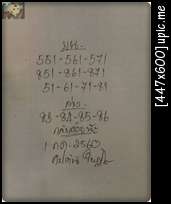 บน..
551-561-571
851-861-871
51-61-71-81
ล่าง.
83-84-85-86
1 กค. 2560
[447x600] upic.me